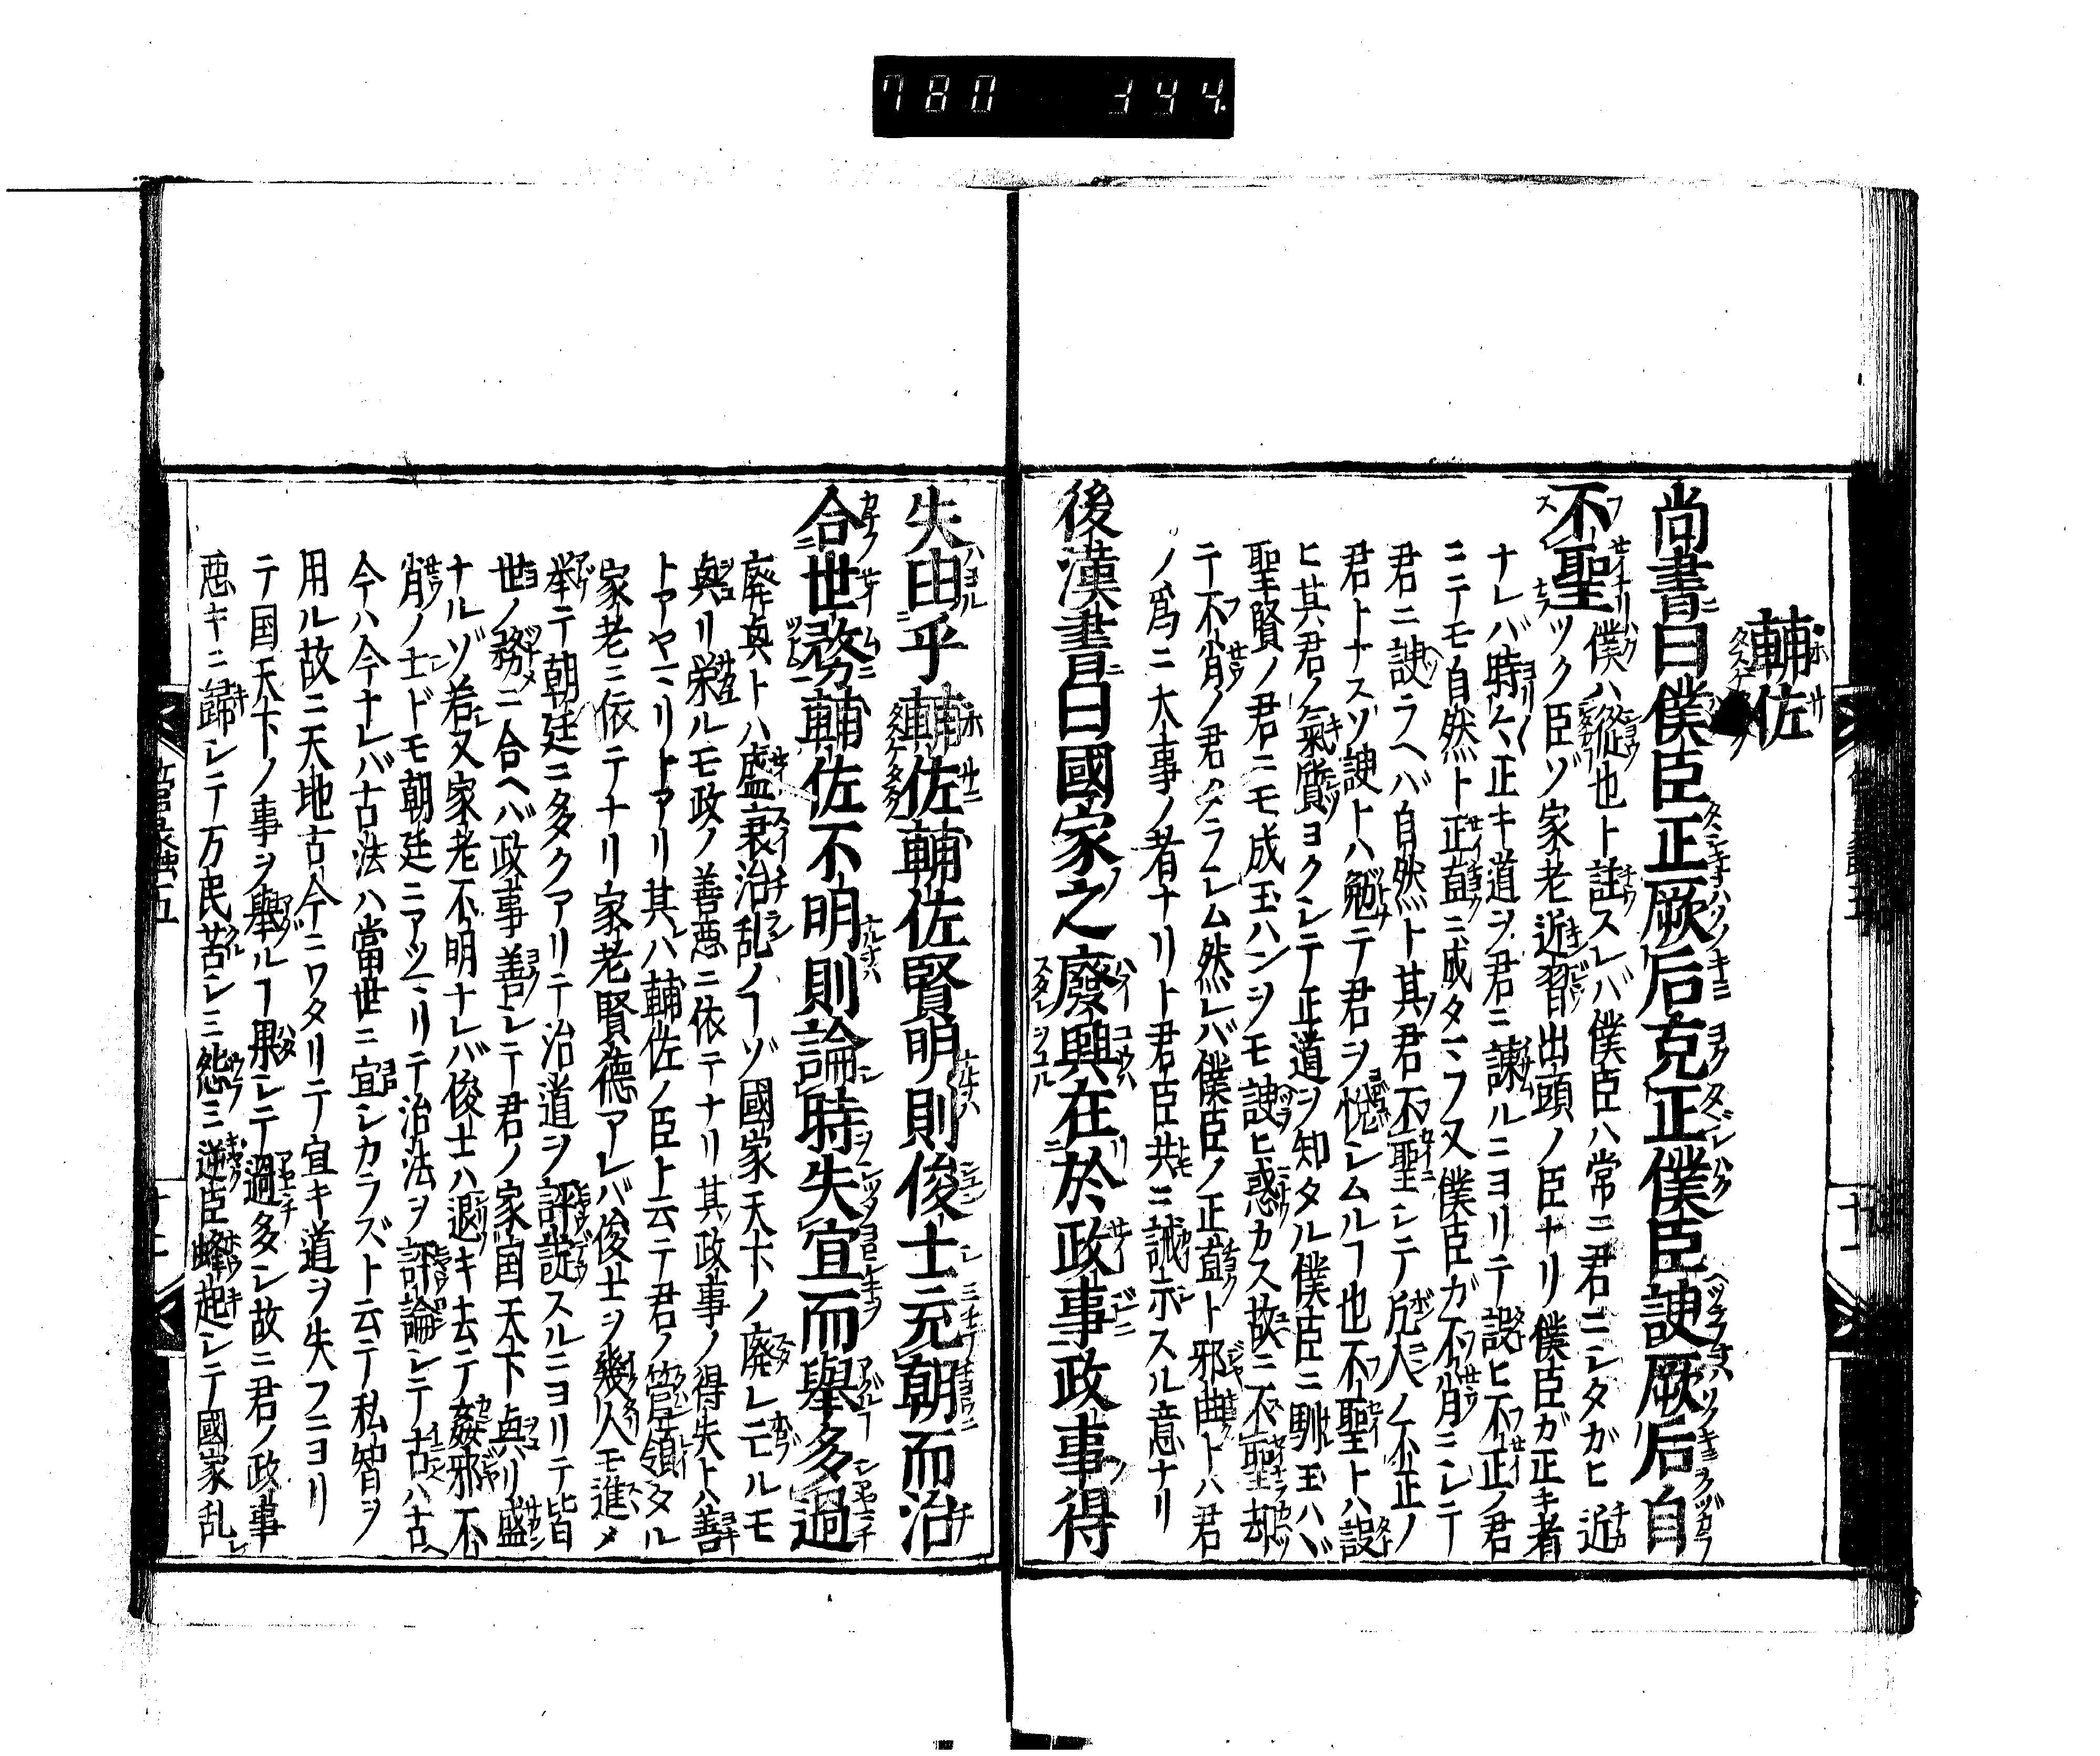 780 344
輔佐
尚書曰僕臣正厥后克正僕臣諛厥后自
不聖
僕ハ從也ト註スレバ僕臣ハ常ニ君ニシタガヒ近
ツク臣ゾ家老近習出頭ノ臣ナリ僕臣ガ正キ者
ナレバ時々正キ道ヲ君ニ諫ルニヨリテ誤ヒ不正ノ君
ニテモ自然ト正直ニ成タマフ又僕臣ガ不肖ニシテ
君ニ諛ラヘバ自然ト其君不聖シテ凡人ノ不正ノ
君トナスゾ諛トハ勉テ君ヲ悦シムルヿ也不聖トハ設
ヒ其君ノ氣質ヨクシテ正道ヲ知タル僕臣ニ馴玉ハバ
聖賢ノ君ニモ成玉ハンヲモ諛ヒ惑カス故ニ不聖却
テ不肖ノ君タラシム然レバ僕臣ノ正直ト邪曲トハ君
ノ爲ニ大事ノ者ナリト君臣共ニ誡示スル意ナリ
後漢書曰國家之廢興在於政事政事得
失由乎輔佐輔佐賢明則俊士充朝而治
合世務輔佐不明則論時失宜而擧多過
廢興トハ盛衰治乱ノヿゾ國家天下ノ廢レ亡ルモ
興リ栄ルモ政ノ善悪ニ依テナリ其政事ノ得失トハ善
トアヤマリトアリ其ハ輔佐ノ臣ト云テ君ノ管領タル
家老ニ依テナリ家老賢德アレバ俊士ヲ幾人モ進メ
挙テ朝廷ニ多クアリテ治道ヲ評諚スルニヨリテ皆
世ノ務ニ合ヘバ政事善シテ君ノ家国天下興リ盛
ナルゾ若又家老不明ナレバ俊士ハ退キ去テ姦邪不
肖ノ士ドモ朝廷ニアツマリテ治法ヲ評論シテ古ハ古
今ハ今ナレバ古法ハ當世ニ宜シカラズト云テ私智ヲ
用ル故ニ天地古今ニワタリテ宜キ道ヲ失フニヨリ
テ国天下ノ事ヲ擧ルヿ果シテ過多シ故ニ君ノ政事
悪キニ歸シテ万民苦シミ怨ミ逆臣蜂起シテ國家乱